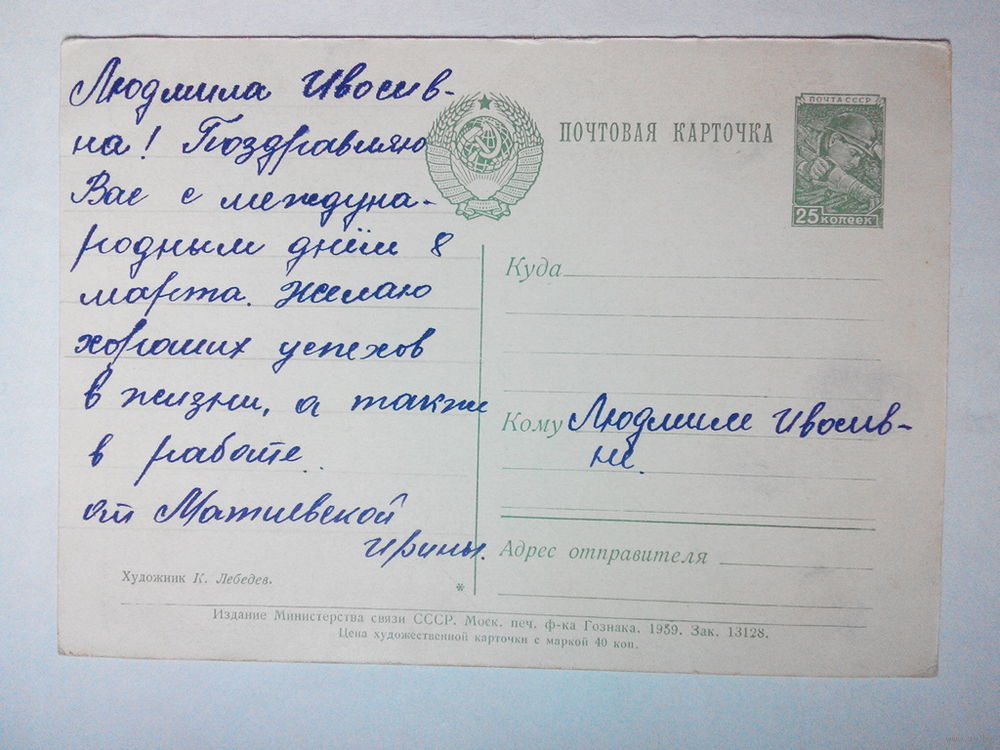 Людмила Ивосив-
на! Поздравляю
Вас с междуна-
родным днём 8
марта. Желаю
хороших успехов
в жизни, а также
в работе..
от Матиевской
Ирины.
Художник К. Лебедев.
ПОЧТОВАЯ КАРТОЧКА
ПОЧТА СССР
25 КОПЕЕК
Куда
Кому Людмиле Ивосив-
не.
Адрес отправителя
*
Издание Министерства связи СССР. Моск. печ. ф-ка Гознака. 1959. Зак. 13128.
Цена художественной карточки с маркой 40 коп.